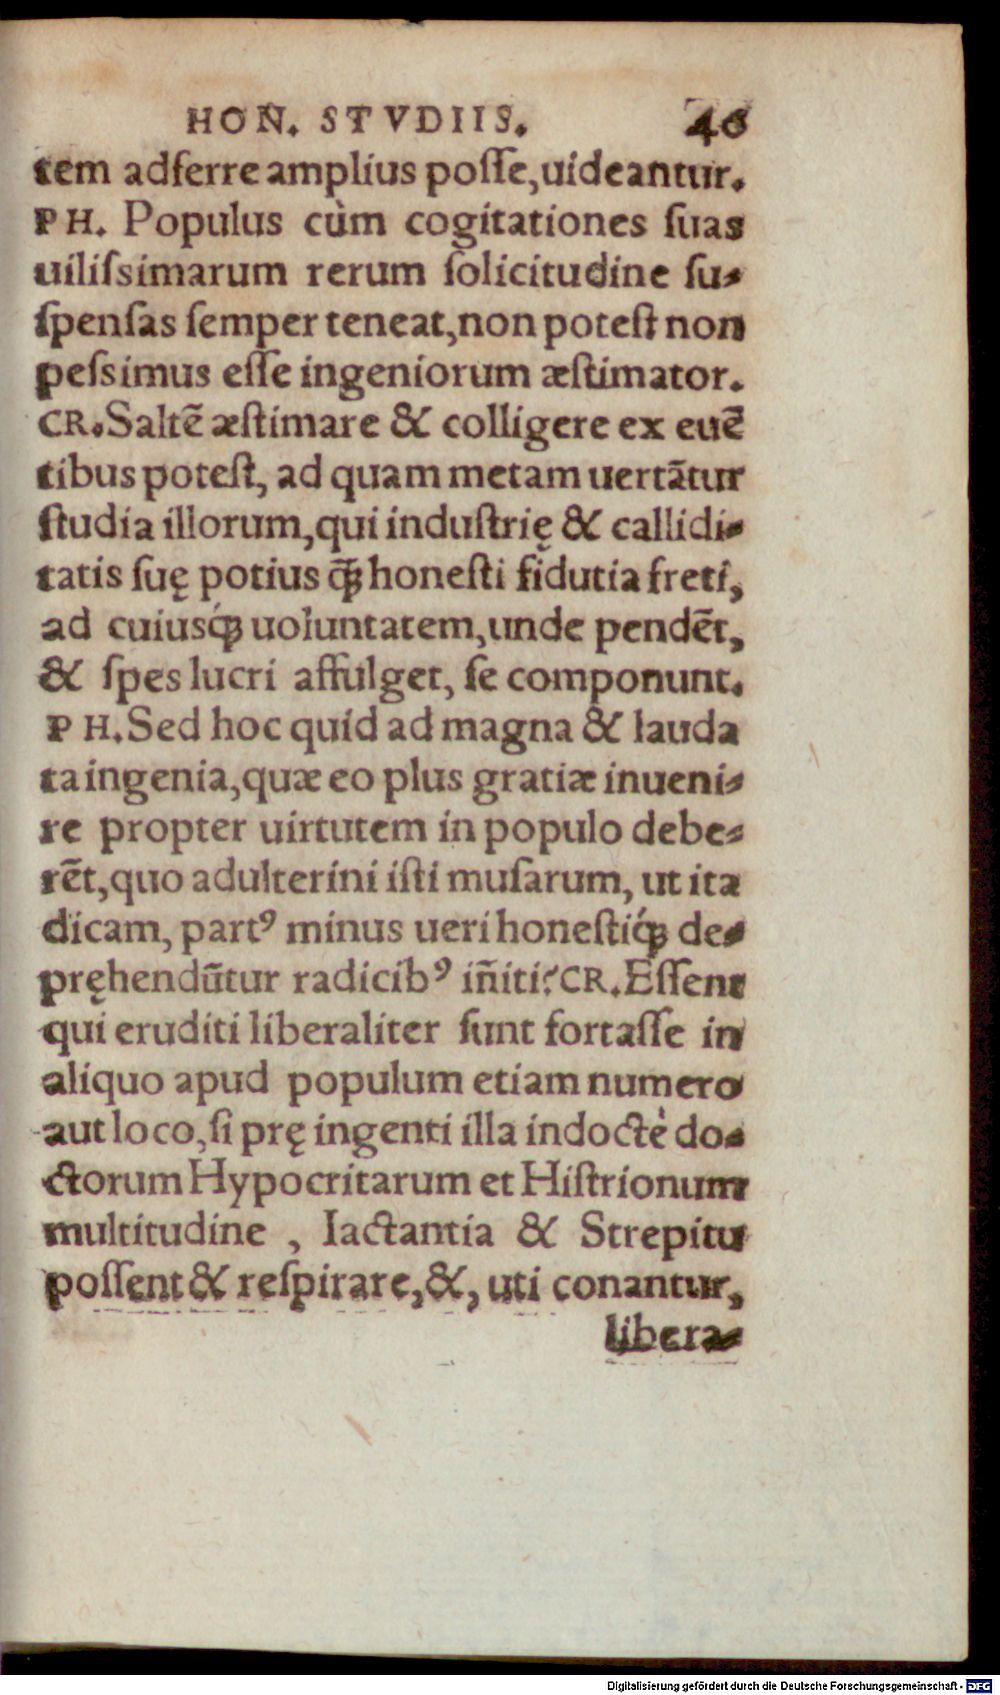 HON. STVDIIS. 46
tem adferre amplius posſe,uideantur.
PH. Populus cùm cogitationes ſuas
uiliſsimarum rerum ſolicitudine ſu-
ſpenſas ſemper teneat,non poteſt non
peſsimus eſſe ingeniorum æſtimator.
CR.Saltē æſtimare & colligere ex euē
tibus poteſt, ad quam metam uertātur
ſtudia illorum,qui induſtrię & callidi-
tatis ſuę potius q̃ꝫ honeſti fidutia freti,
ad cuiusq́ꝫ uoluntatem,unde pendēt,
& ſpes lucri affulget, ſe componunt.
PH.Sed hoc quid ad magna & lauda
ta ingenia,quæ eo plus gratiæ inueni-
re propter uirtutem in populo debe-
rēt,quo adulterini iſti muſarum, ut ita
dicam, partꝰ minus ueri honeſtiq́ꝫ de-
pręhendūtur radicibꝰ iñiti? CR.Eſſent
qui eruditi liberaliter ſunt fortaſſe in
aliquo apud populum etiam numero
aut loco,ſi prę ingenti illa indoctè do-
ctorum Hypocritarum et Hiſtrionum
multitudine , Iactantia & Strepitu
poſſent & reſpirare,&, uti conantur,
libera-
Digitalisierung gefördert durch die Deutsche Forschungsgemeinschaft - DFG